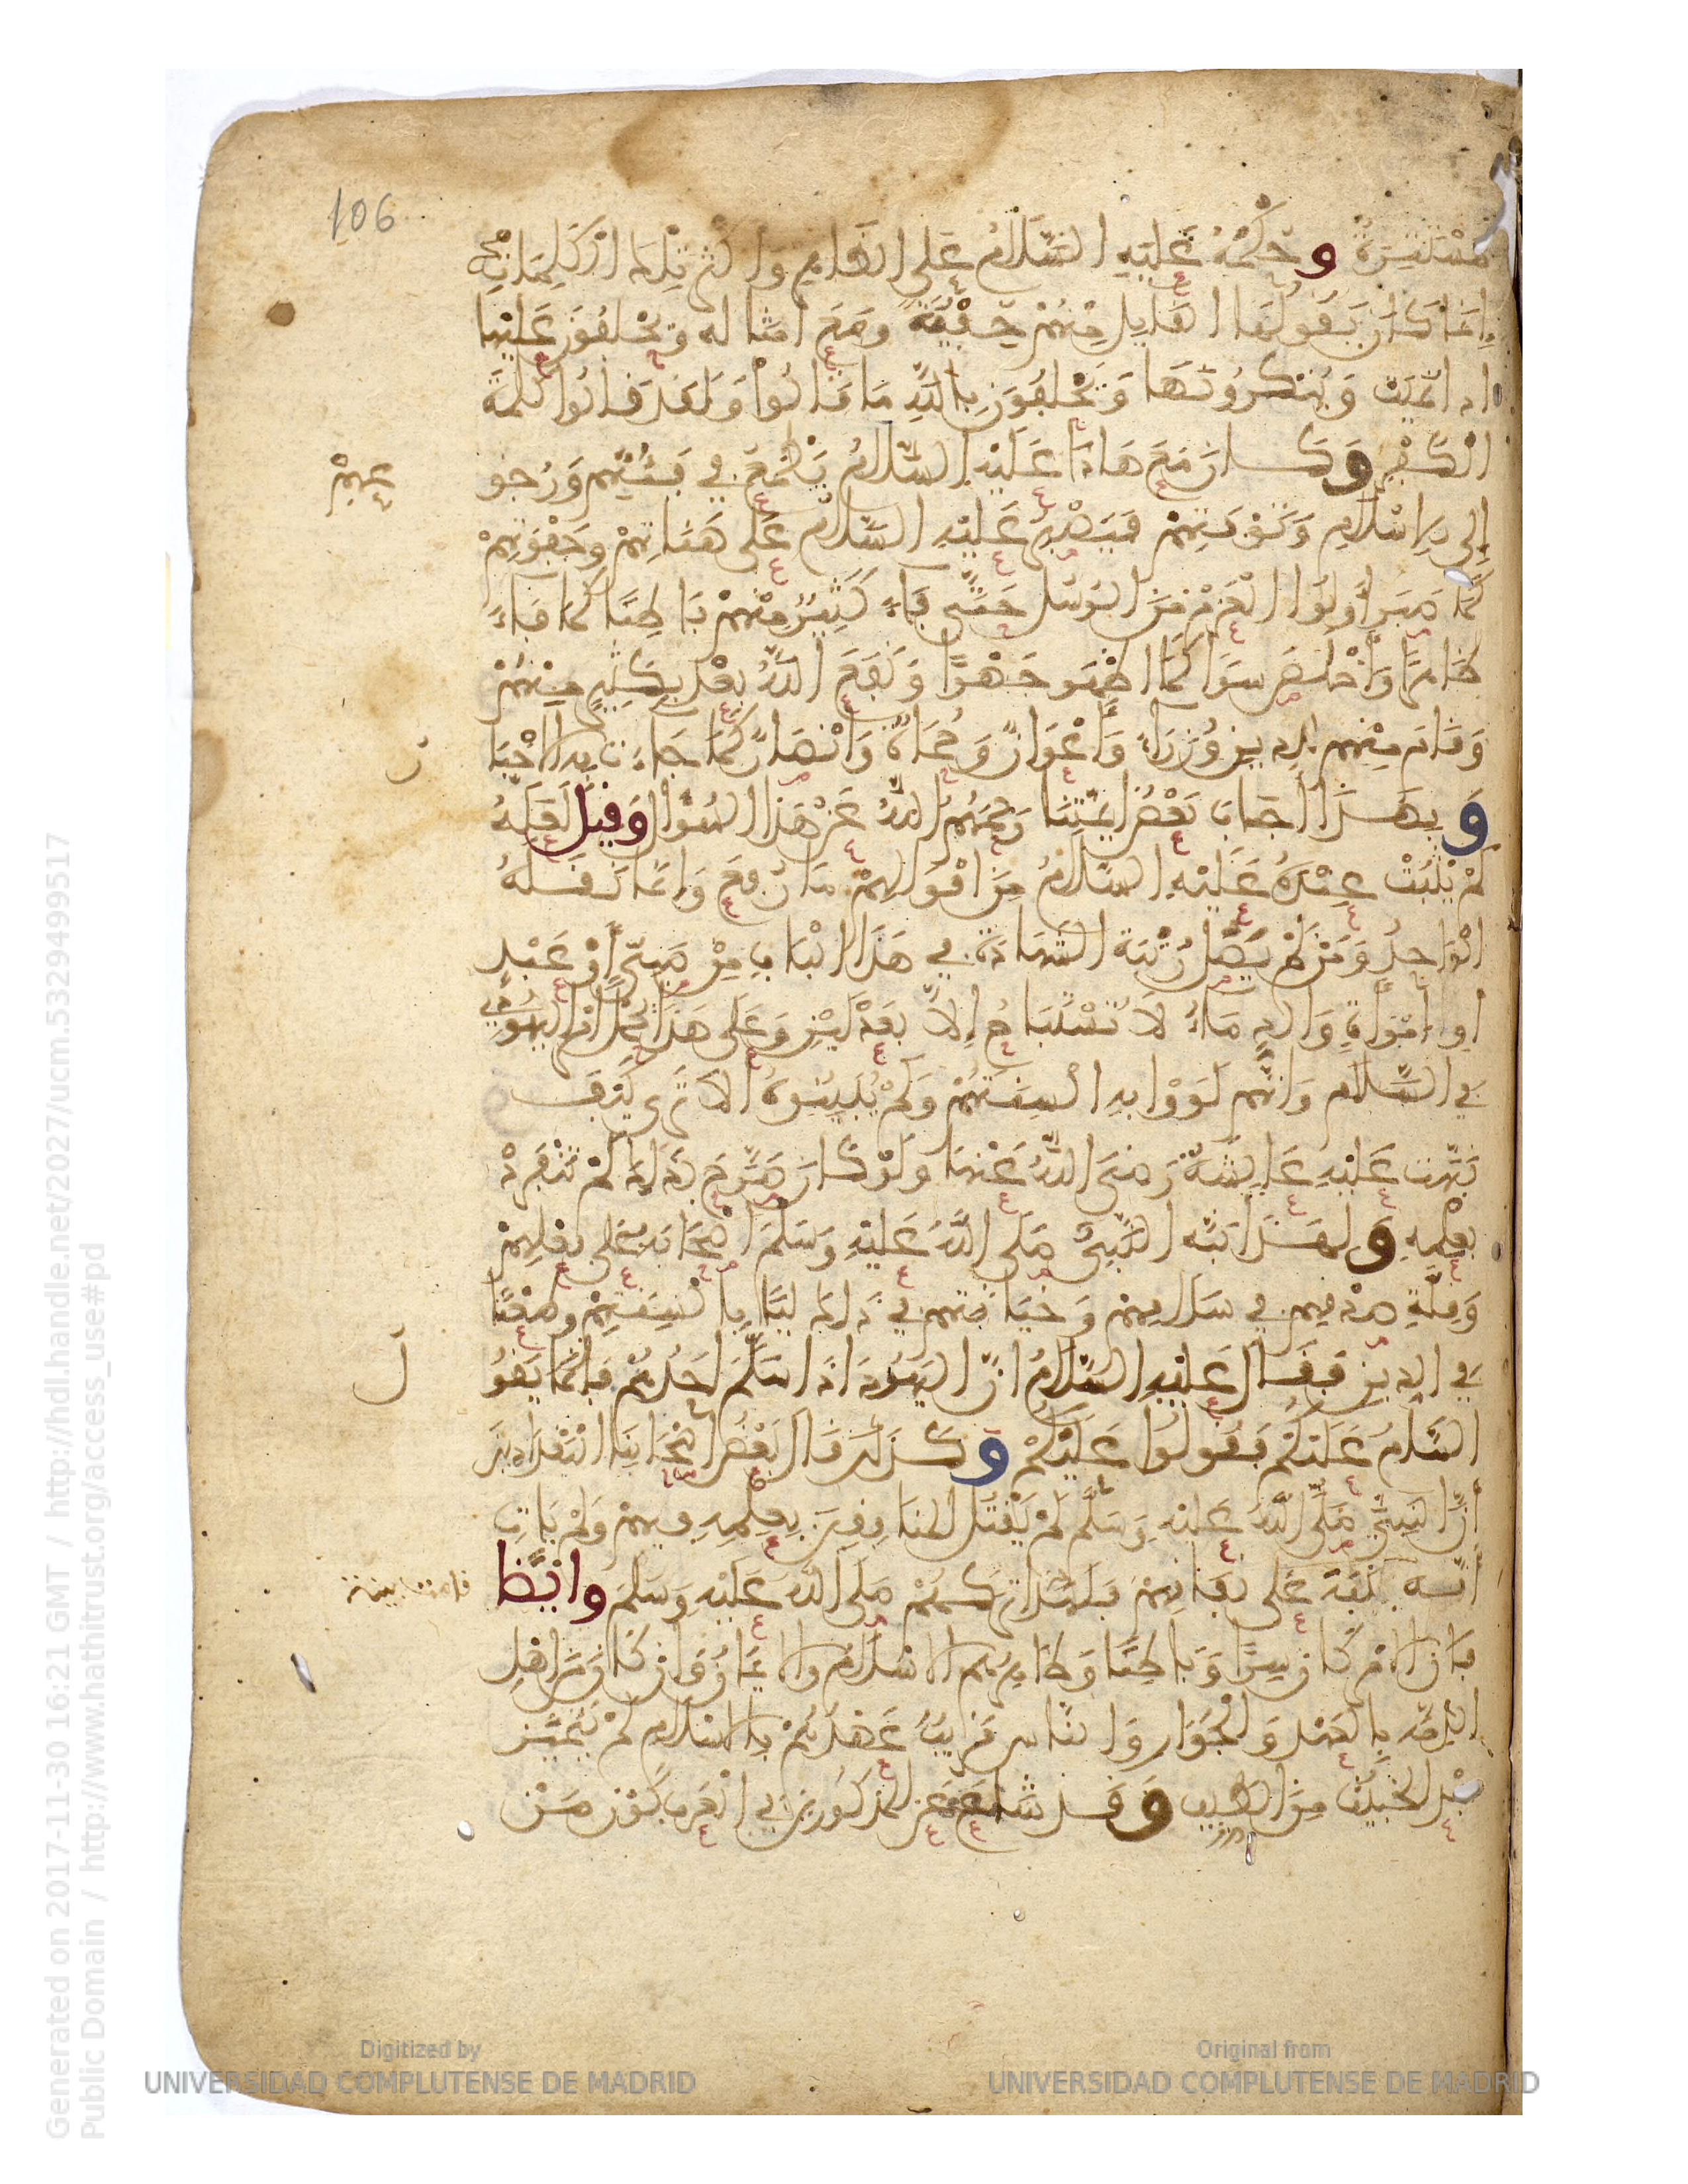 106
مُسْتَتِرَةٌ وحُكْمُهُ عَلَيْهِ السَّلَامُ عَلَى الظَّاهِرِ وَأكْثَرُ تِلْكَ الْكَلِمَاتِ
إِنَّمَا كَانَ يَقُولُهَا الْقَايِلُ مِنْهُمْ خِفْيَةً ومَعَ أمْثَالِهِ وَيَحْلِفُونَ عَلَيْهَا
اذا نُمِيَتْ وَيُنْكِرُونَهَا وَيَحْلِفُونَ بِاللَّهِ مَا قَالُوا وَلَقَدْ قَالُوا كَلِمَةَ
الْكُفْرِ وَكَانَ مَعَ هَاذَا عَلَيْهِ السَّلَامُ يَطْمَعُ فِي فَيْئَتِهِمْ وَرُجُو
عِهِمْ
إِلَى الاسْلَامِ وَتَوْبَتِهِمْ فَيَصْبِرُ عَلَيْهِ السَّلَامُ عَلَى هَنَاتِهِمْ وجَفْوَتِهِمْ
كَمَا صَبَرَ أُولُوا الْعَزْمِ مِنَ الرُّسُلِ حَتَّى فَاءَ كَثِيرٌ مِنْهُمْ بَاطِنًا كَمَا فَاءَ
ظَاهِرًا وَأَخْلَصَ سِرًّا كَمَا اظْهَرَ جَهْرًا وَنَفَعَ اللَّهُ بَعْدُ بِكَثِيرٍ مِنْهُمْ
وَقَامَ مِنْهُمْ لِلدِّينِ وُزَرَاءُ وَأَعْوَانٌ وَحُمَاةٌ وَأَنْصَارٌ كَمَا جَاءَتْ بِهِ الاخْبَا
رُ
وَبِهَذَا أجَابَ بَعْضُ أيِمَّتِنَا رَحِمَهُمُ اللَّهُ عَنْ هَذَا السُّؤَالِ وَقِيلَ لَعَلَّهُ
لَمْ يَثْبُتْ عِنْدَهُ عَلَيْهِ السَّلَامُ مِنْ أقْوَالِهِمْ مَا رُفِعَ وَإنَّمَا نَقَلَهُ
الْوَاحِدُ وَمَنْ لَمْ يَصِلْ رُتْبَةَ الشَّهَادَةِ فِي هَذَا الْبَابِ مِنْ صَبِيٍّ أَوْ عَبْدٍ
أَوِ امْرَأَةٍ وَالدِّمَاءُ لَا تُسْتَبَاحُ إِلَّا بِعَدْلَيْنِ وَعَلَى هَذَا يُحْمَلُ أمْرُ الْيَهُودِيِّ
فِي السَّلَامِ وَانَّهُمْ لَوَوْا بِهِ ألْسِنَتَهُمْ وَلَمْ يُبَيِّنُوهُ الَا تَرَى كَيْفَ
نَبَّهَتْ عَلَيْهِ عَايِشَةُ رَضِيَ اللَّهُ عَنْهَا وَلَوْ كَانَ صَرَّحَ بِذَلِكَ لَمْ تَنْفَرِدْ
بِعِلْمِهِ وَلِهَذَا نَبَّهَ النَّبِيُّ صَلَّى اللَّهُ عَلَيْهِ وَسَلَّمَ أصْحَابَهُ عَلَى فِعْلِهِمْ
وَقِلَّةِ صِدْقِهِمْ فِي سَلَامِهِمْ وَخِيَانَتِهِمْ فِي ذَلِكَ لَيًّا بِألْسِنَتِهِمْ وطَعْنًا
فِي الدِّينِ فَقَالَ عَلَيْهِ السَّلَامُ انَّ الْيَهُودَ اذَا سَلَّمَ أحَدُهُمْ فَإنَّمَا يَقُو
لُ
السَّامُ عَلَيْكُمْ فَقُولُوا عَلَيْكُمْ وَكَذَلِكَ قَالَ بَعْضُ أصْحَابِنَا الْبَغْدَادِيِّينَ
أنَّ النَّبِيَّ صَلَّى اللَّهُ عَلَيْهِ وَسَلَّمَ لَمْ يَقْتُلِ الْمُنَافِقِينَ بِعِلْمِهِ فِيهِمْ وَلَمْ يَاتِ
أَنَّهُ قَامَتْ بَيِّنَةٌ عَلَى نِفَاقِهِمْ فَلِهَذَا تَرَكَهُمْ صَلَّى اللَّهُ عَلَيْهِ وَسَلَّمَ وايْضًا
فَإنَّ الامْرَ كَانَ سِرًّا وَبَاطِنًا وَظَاهِرُهُمُ الاسْلَامُ والايمَانُ وَإنْ كَانَ مِنْ أهْلِ
الذِّمَّةِ بِالْعَهْدِ وَالْجِوَارِ وَالنَّاسُ قَرِيبٌ عَهْدُهُمْ بِالاسْلَامِ لَمْ يَتَمَيَّزْ
بَعْدُ الْخَبِيثُ مِنَ الطَّيِّبِ وَقَدْ شَاعَ عَنِ الْمَذْكُورِينَ فِي الْعَرَبِ كَوْنُ مَنْ
Generated on 2017-11-30 16:21 GMT / http://hdl.handle.net/2027/ucm.5329499517
Public Domain / http://www.hathitrust.org/access_use#pd
Digitized by
UNIVERSIDAD COMPLUTENSE DE MADRID
Original from
UNIVERSIDAD COMPLUTENSE DE MADRID